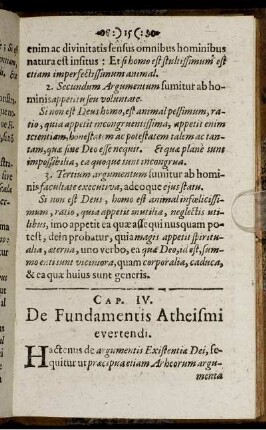 15
enim ac divinitatis sensus omnibus hominibus
natura est insitus: Et si homo est stultissimum est
etiam imperfectissimum animal.
2. Secundum Argumentum sumitur ab ho-
minis appetitu seu voluntate.
Si non est Deus homo, est animal pessimum, ra-
tio, quia appetit incongruentissima, appetit enim
scientiam, honestatem ac potestatem talem ac tan-
tam, quæ sine Deo esse nequit. Et quæ planè sunt
impossibilia, ea quoque sunt incongrua.
3. Tertium argumentum sumitur ab homi-
nis facultate executiva, adeoque ejus statu.
Si non est Deus, homo est animal infœlicissi-
mum, ratio, quia appetit inutilia, neglectis uti-
libus, imo appetit ea quæ assequi nusquam po-
test, dein probatur, quia magis appetit spiritu-
alia, æterna, uno verbo, ea quæ Deo, id est, sum-
mo enti sunt viciniora, quam corporalia, caduca,
& ea quæ huius sunt generis.
CAP. IV.
De Fundamentis Atheismi
evertendi.
Hactenus de argumentis Existentiæ Dei, se-
quitur ut præcipua etiam Atheorum argu-
menta